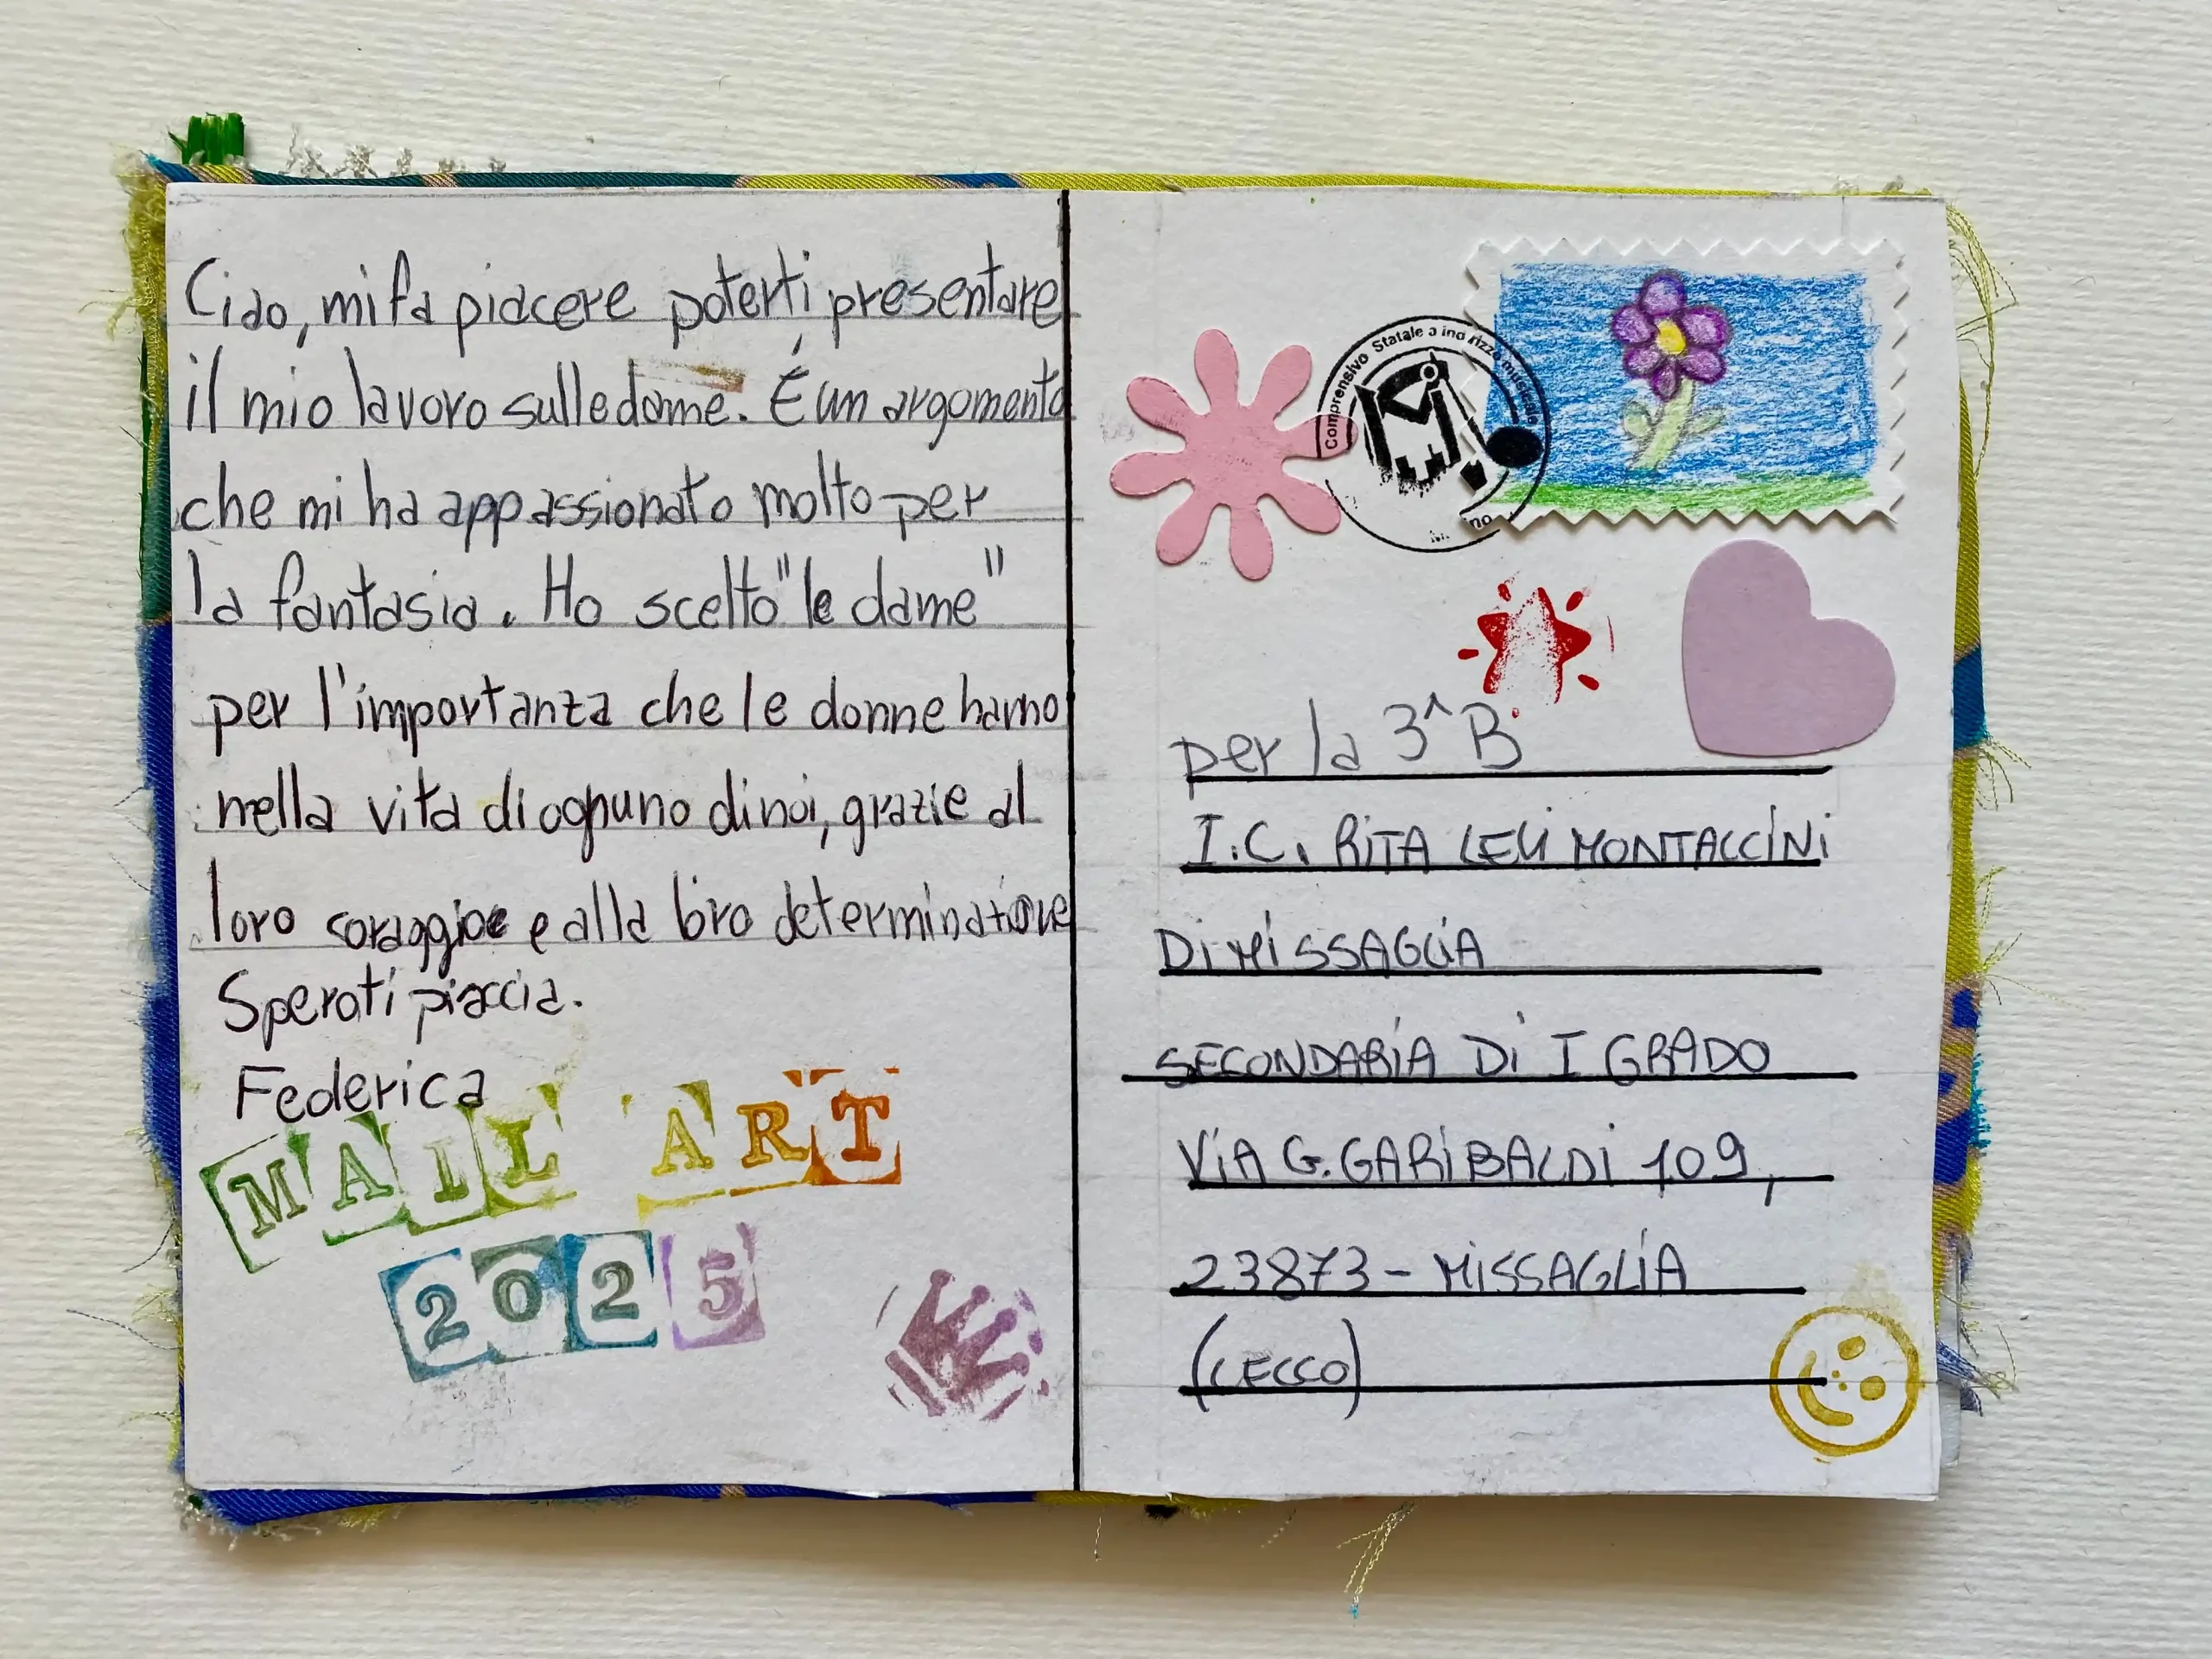 Ciao, mi fa piacere poterti presentare
il mio lavoro sulle dame. É un argomento
che mi ha appassionato molto per
la fantasia. Ho scelto "le dame"
per l'importanza che le donne hanno
nella vita di ognuno di noi, grazie al
loro coraggio e alla loro determinazione
Spero ti piaccia.
Federica
MAIL ART
2025
Comprensivo Statale a indirizzo musicale
no
per la 3^B
I.C. RITA LEVI MONTACCINI
DI MISSAGLIA
SECONDARIA DI I GRADO
VIA G. GARIBALDI 109,
23873 - MISSAGLIA
(LECCO)